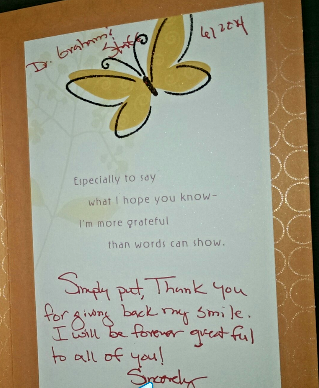 Dr. Graham's Staff
6/2014
Especially to say
what I hope you know—
I'm more grateful
than words can show.
Simply put, Thank you
for giving back my smile.
I will be forever grateful
to all of you!
Sincerely